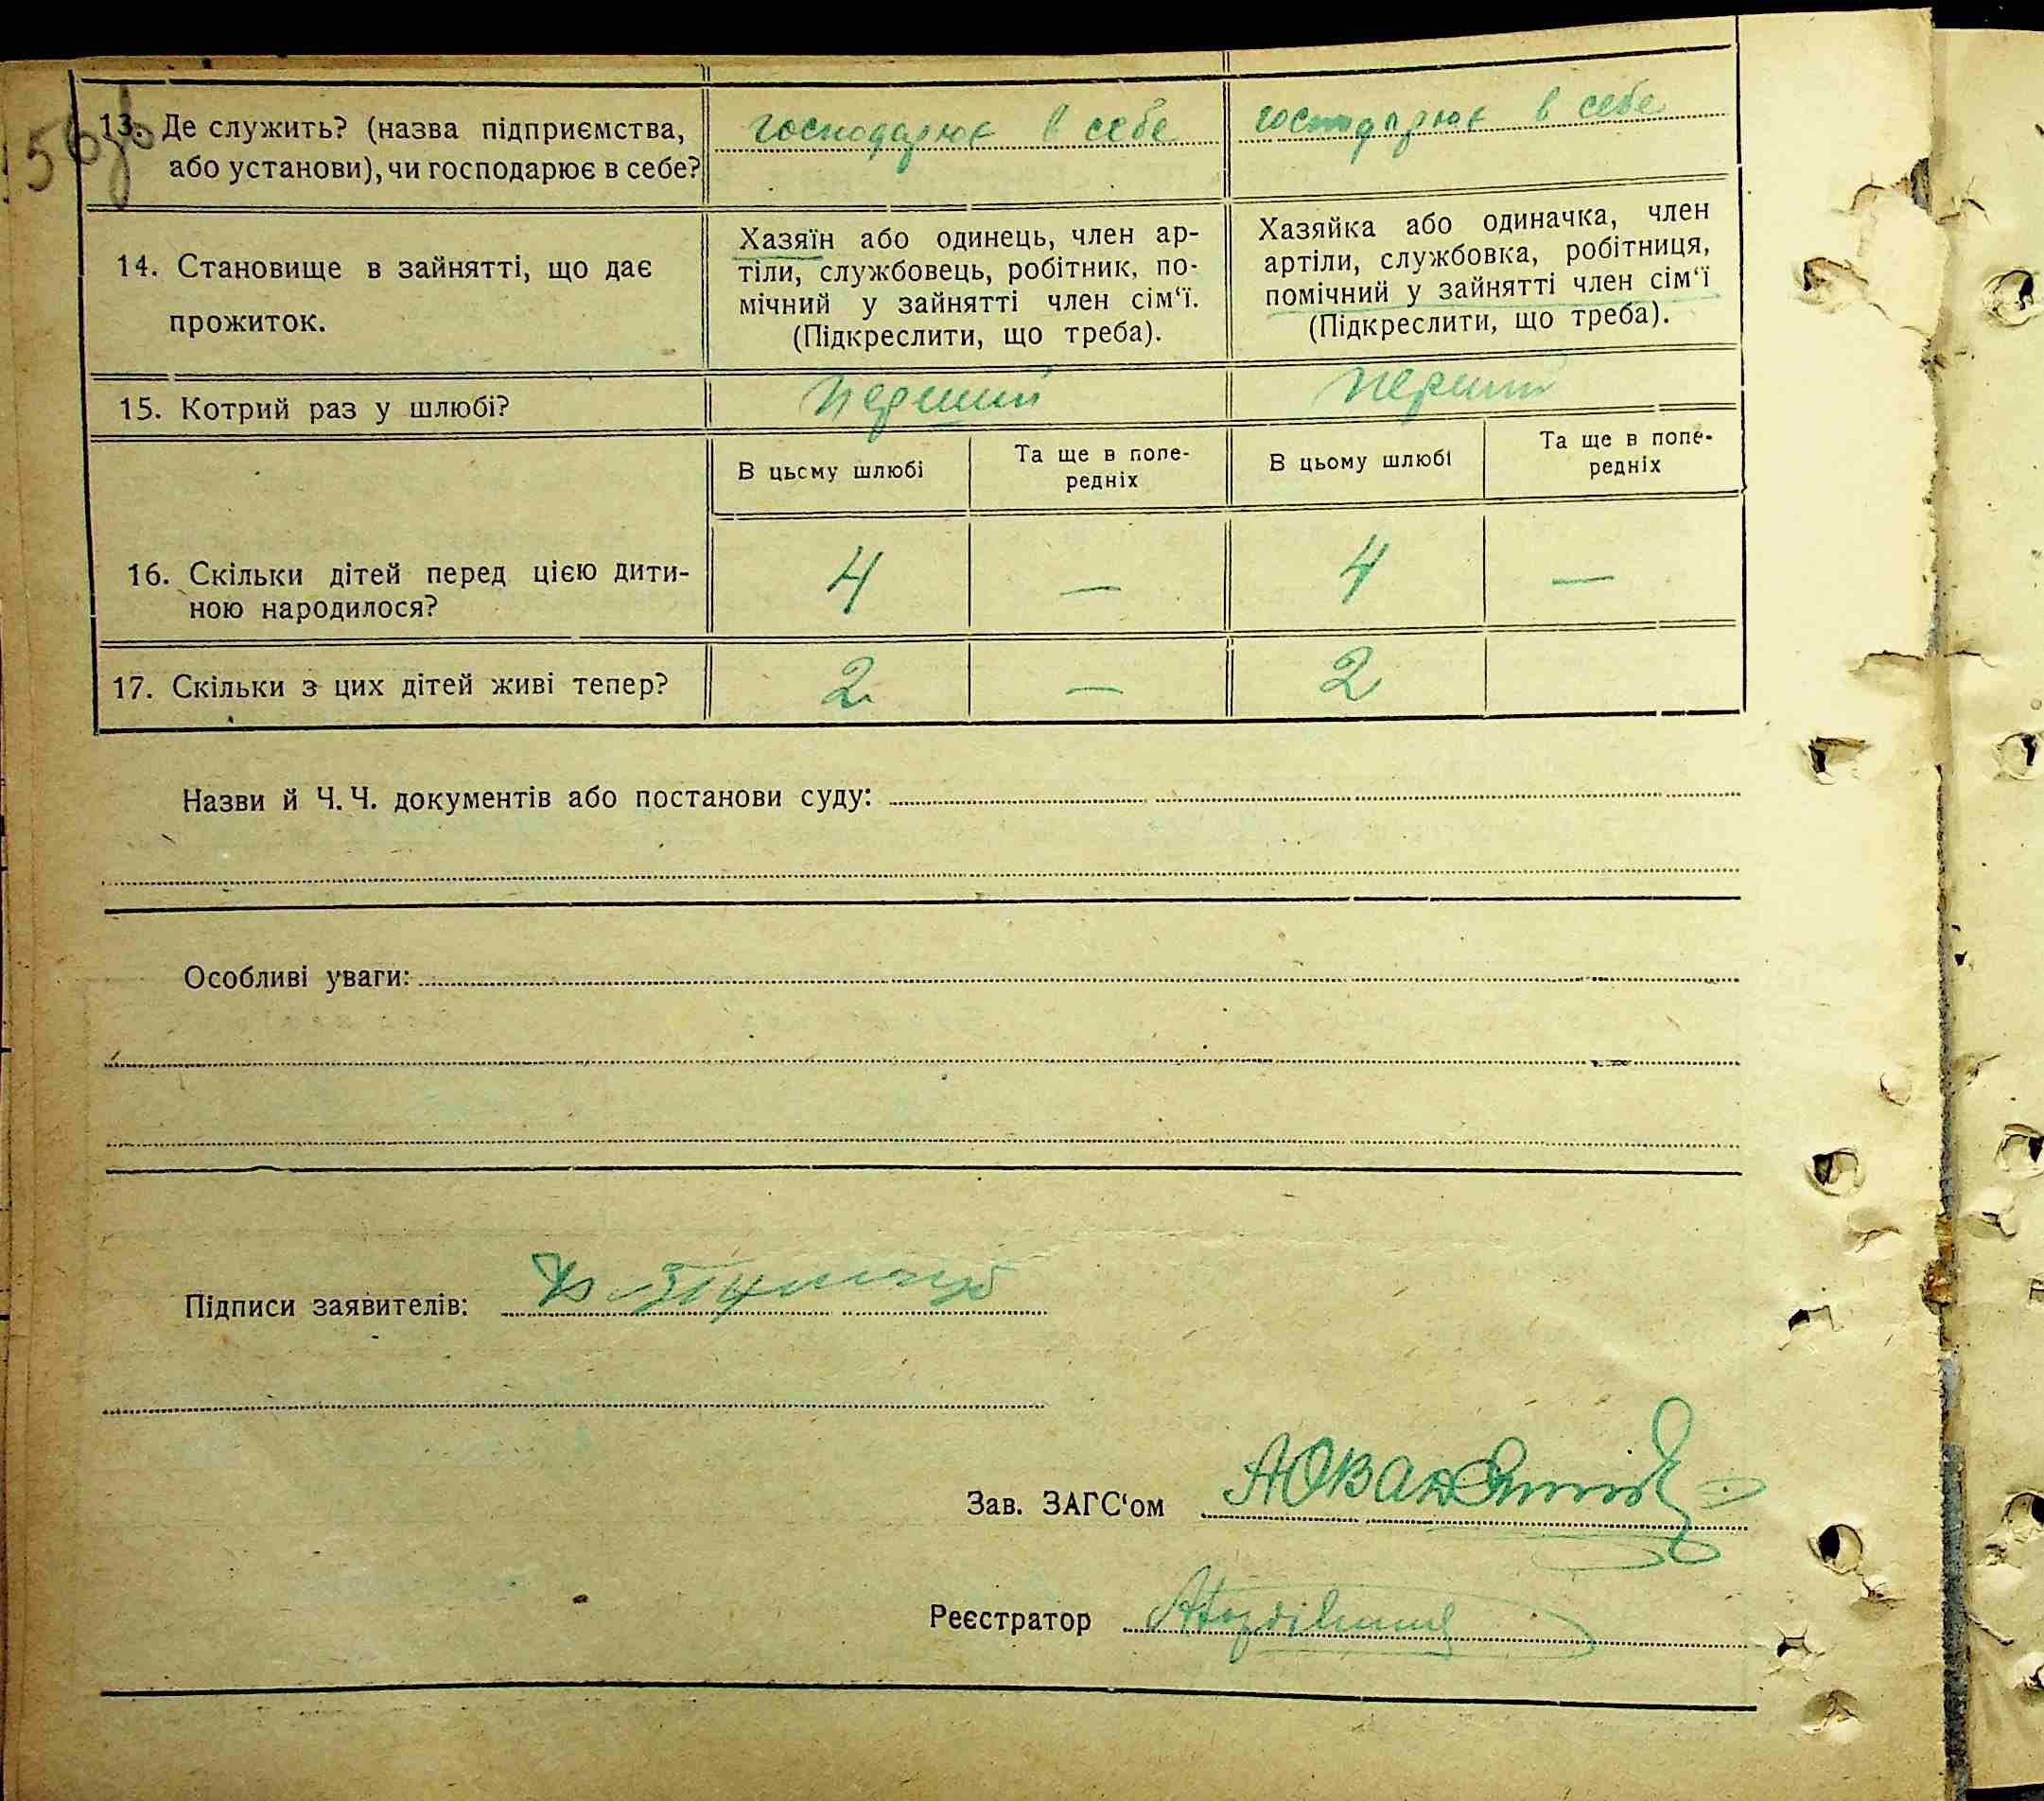 13. Де служить? (назва підприємства, господарює в себе господарює в себе
або установи), чи господарює в себе?
14. Становище в зайнятті, що дає
прожиток.
Хазяїн або одинець, член ар-
тіли, службовець, робітник, по-
мічний у зайнятті член сім‘ї.
(Підкреслити, що треба).
Хазяйка або одиначка, член
артіли, службовка, робітниця,
помічний у зайнятті член сім‘ї
(Підкреслити, що треба).
15. Котрий раз у шлюбі? перший перший
В цьому шлюбі
Та ще в попе-
редніх
В цьому шлюбі
Та ще в попе-
редніх
16. Скільки дітей перед цією дити-
ною народилося?
4 — 4 —
17. Скільки з цих дітей живі тепер? 2 — 2
Назви й Ч. Ч. документів або постанови суду:
Особливі уваги:
Підписи заявителів:
Зав. ЗАГС‘ом
Реєстратор